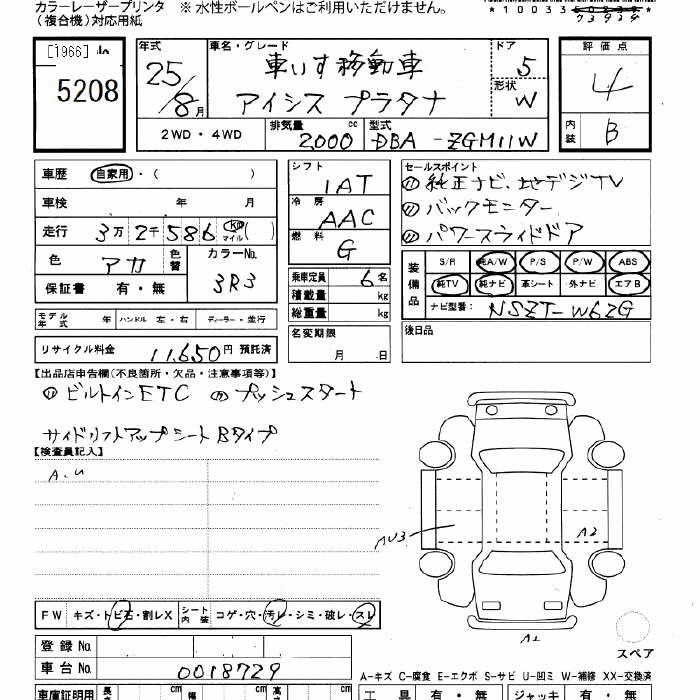 カラーレーザープリンタ ※ 水性ボールペンはご利用いただけません。
(複合機)対応用紙
[1966]
5208
年式
25/8月
車名・グレード
車いす移動車
アイシス プラタナ
ドア
5
形状
W
評価点
4
内装
B
2WD・4WD
排気量
2,000
cc
型式
DBA-ZGM11W
車歴
自家用・( )
車検
年 月
走行
3万2千586 km マイル( )
色
アカ
色替
カラーNo.
3R3
保証書
有・無
シフト
IAT
冷房
AAC
燃料
G
乗車定員
6名
積載量
kg
総重量
kg
名変期限
月 日
セールスポイント
純正ナビ、地デジTV
バックモニター
パワースライドドア
装備品
S/R
純A/W
P/S
P/W
ABS
純TV
純ナビ
革シート
外ナビ
エアB
ナビ型番:
NSZT-W62G
後日品
モデル年式
年
ハンドル
左・右
ディーラー・並行
リサイクル料金
11,650円 預託済
【出品店申告欄(不良箇所・欠品・注意事項等)】
ビルトインETC プッシュスタート
サイドリフトアップシート Bタイプ
【検査員記入】
A.U
AU3
A2
A1
スペア
FW
キズ・トビ石・割レX
シート内装
コゲ・穴・汚レ・シミ・破レ・スレ
登録No.
車台No.
0018729
A-キズ C-腐食 E-エクボ S-サビ U-凹ミ W-補修 XX-交換済
車庫証明用
長
cm
幅
cm
高
cm
工具
有・無
ジャッキ
有・無